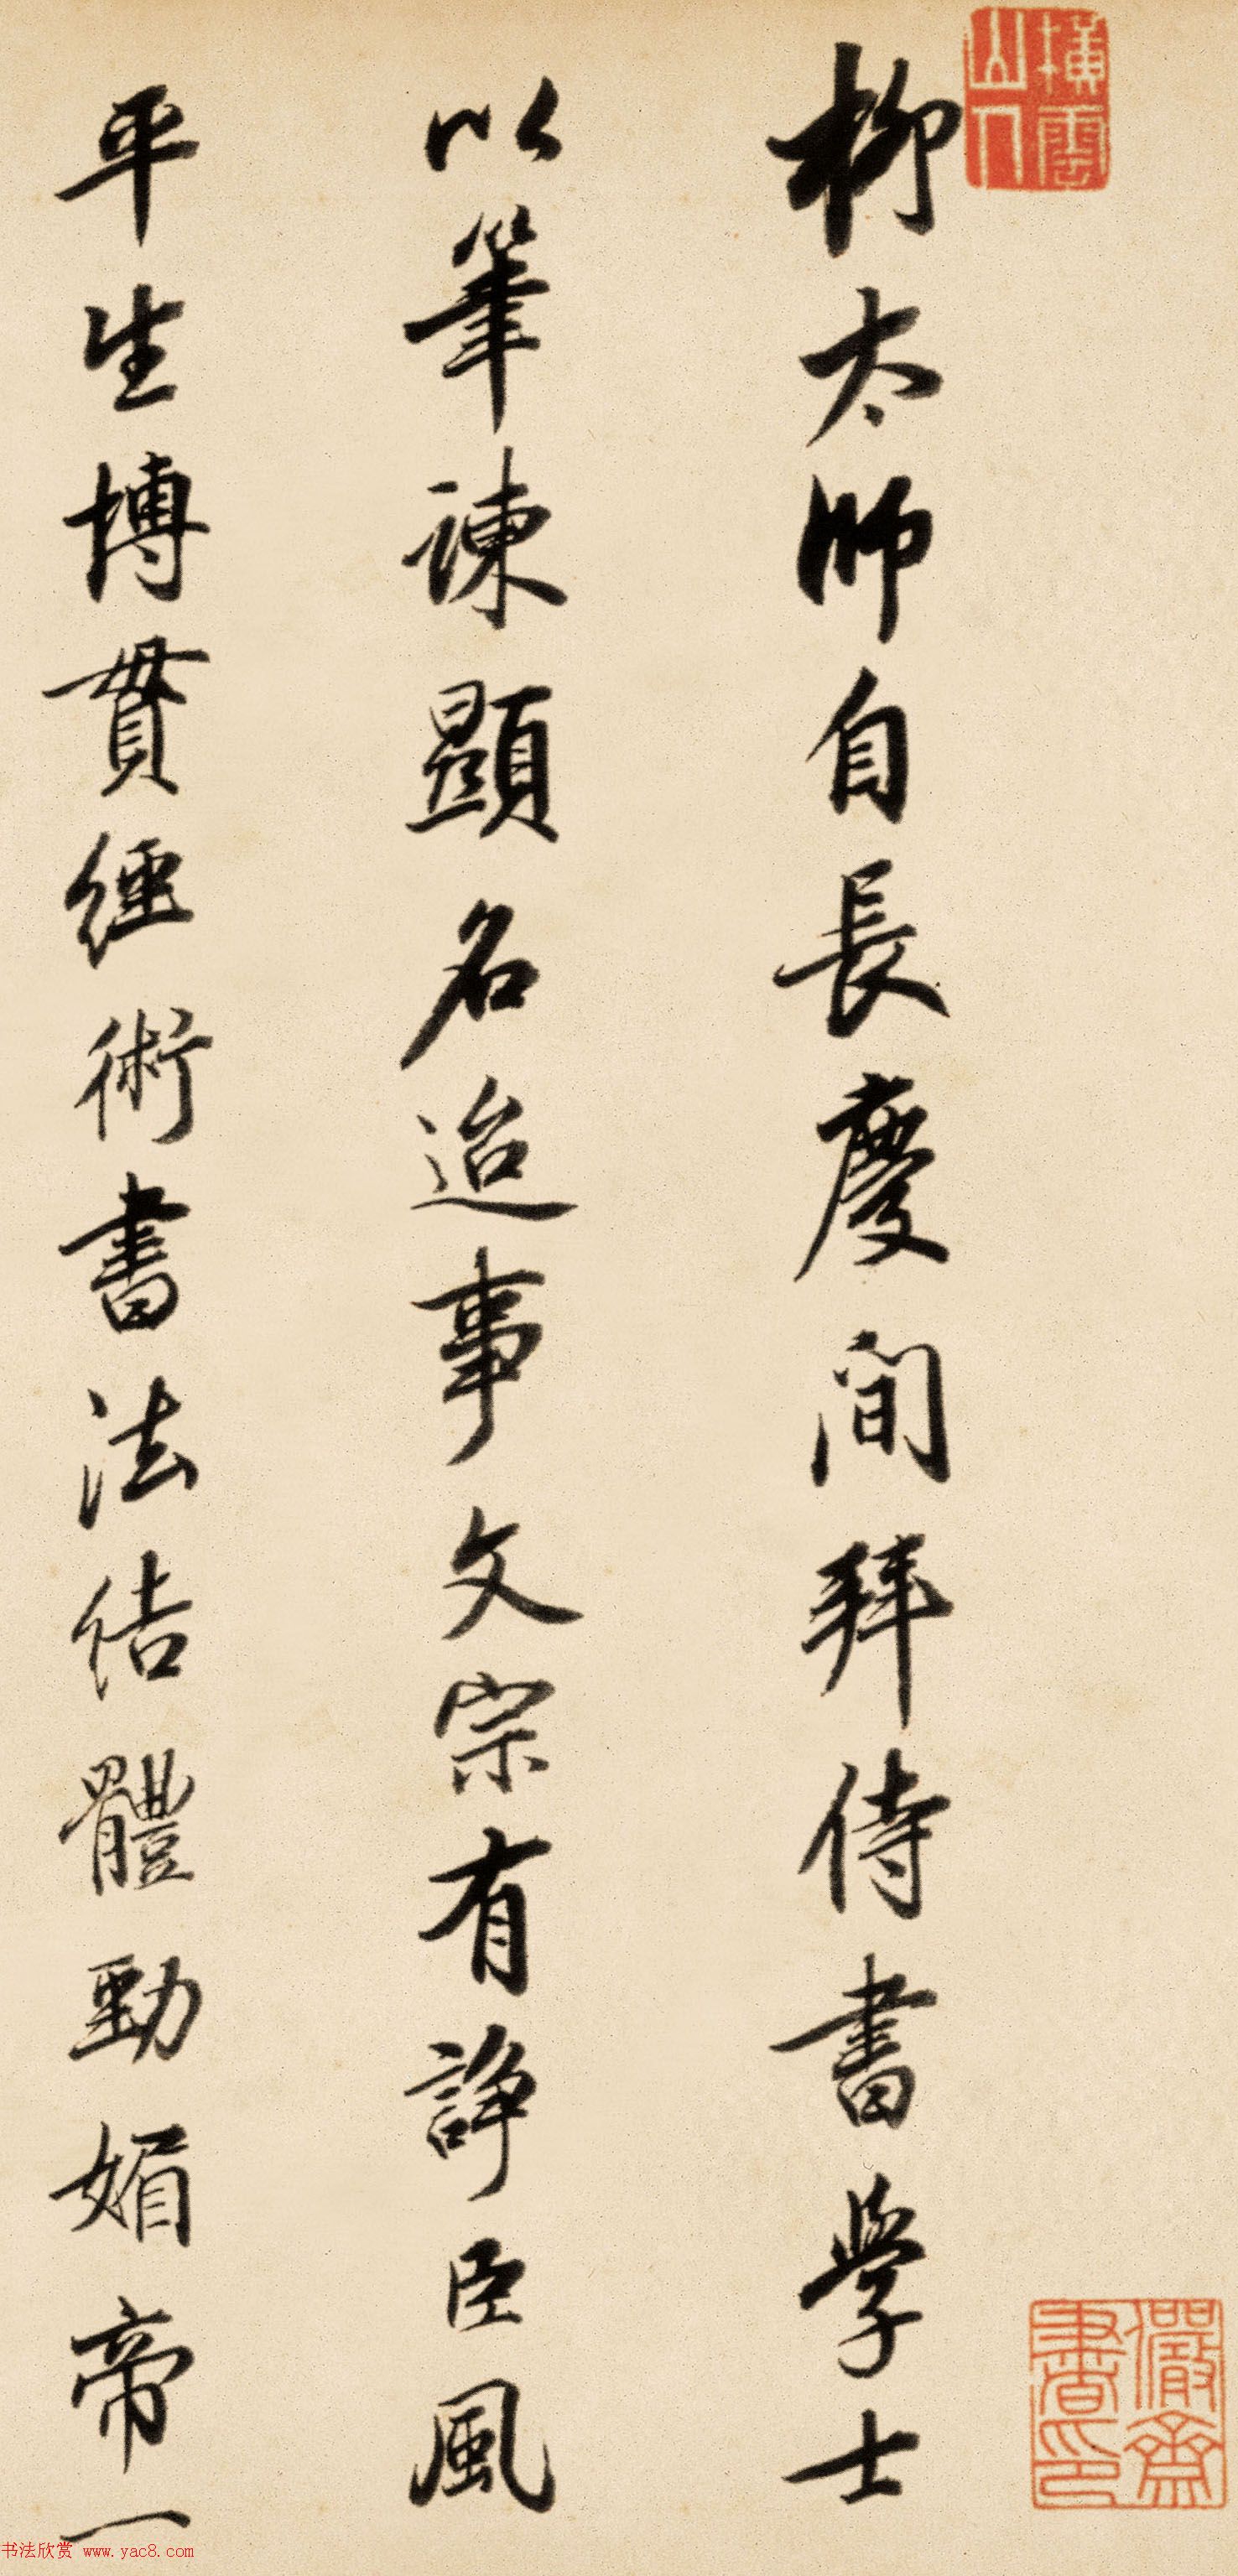 柳太師自長慶間拜侍書學士
以筆諫顯名迨事文宗有諍臣風
平生博貫經術書法結體勁媚帝一
橫雲山人
儼齋書印
书法欣赏 www.yac8.com